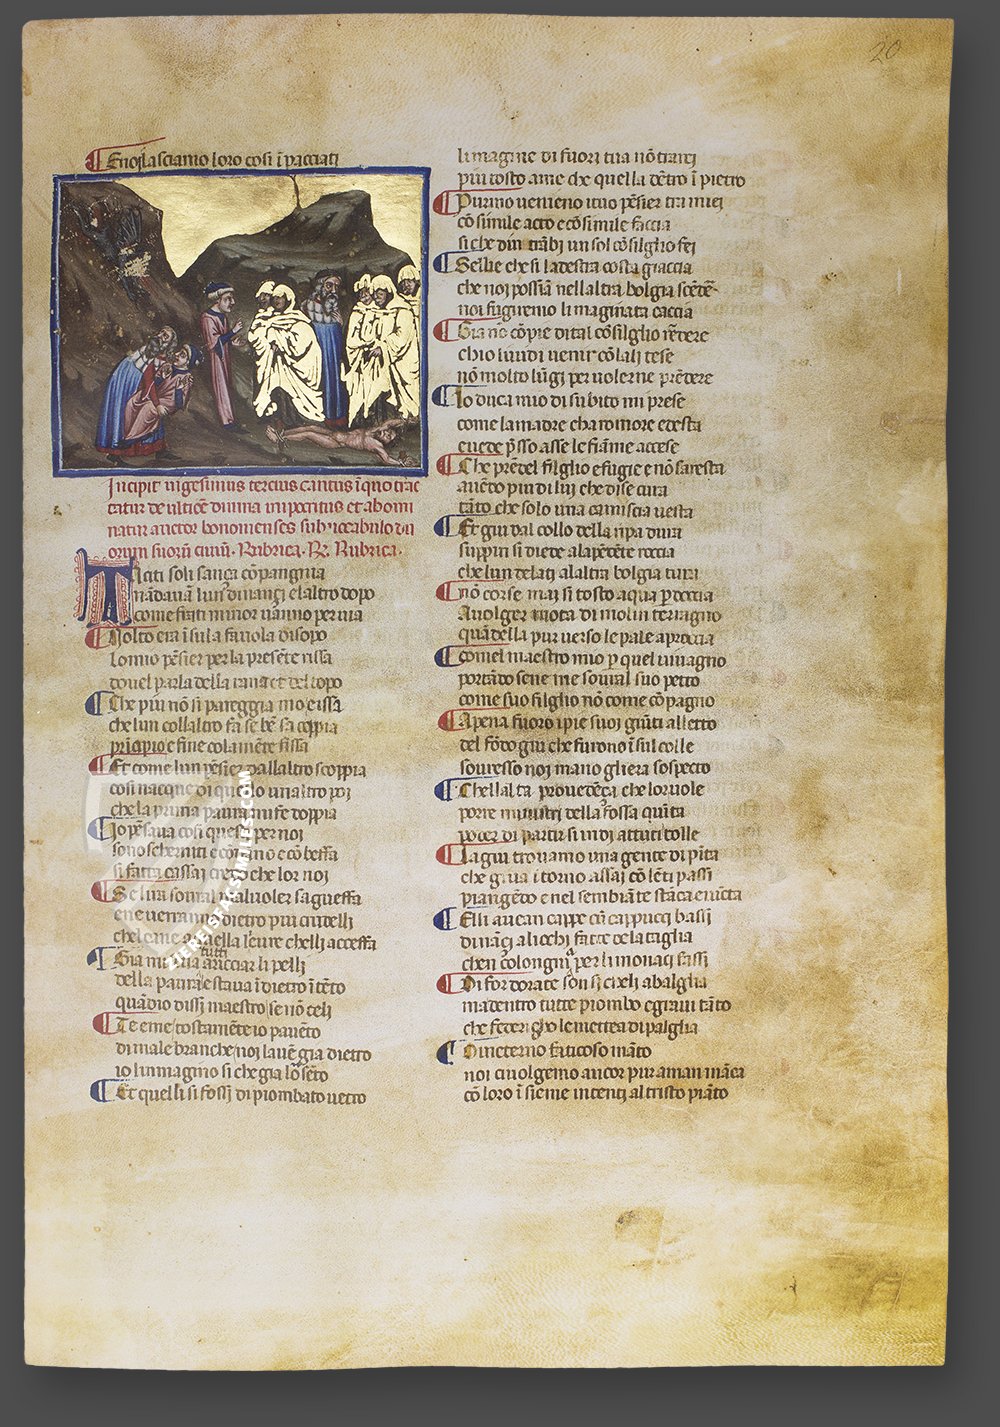 20
Enoi lasciamo loro cosi ĩpacciati
Incipit uigesimus tercius cantus ĩquo trac
tatur de
natur auctor bononienses sub uocabulo du
orum suorũ ciuiũ. Rubrica. Rubrica.
Taciti soli sanza cõpangnia
nãdauã lun dinanzi elaltro dopo
come frati minor uãnno per uia
Uolto era ĩ sula fauola disopo
lo mio pẽsier per la presẽte rissa
douel parla della rana et del topo
Che piu nõ si pareggia mo eissa
che lun collaltro fa se bẽ sa coppia
prĩcipio e fine cola mẽte fissa
Et come lun pẽsier dallaltro scoppia
cosi nacque di quello unaltro poi
che la prima paura mi fe doppia
Io pẽsaua cosi questi per noi
sono scherniti e cõ dãno e cõ beffa
si fatta cassai credo che lor noi
Se lira soural mal uoler sagueffa
ene uerranno dietro piu crudelli
chel cane a quella leure chelli acceffa
Gia mi sentia tutti aricciar li pelli
della paura estaua ĩ dietro ĩ tẽto
quãdio dissi maestro se nõ celi
Te e me tostamẽte io pauẽto
di male branche noi lauẽ gia dietro
io linmagino si che gia lo sẽto
Et quelli si fossi di piombato uetro
limagine di fuori tua nõ trarei
piu tosto a me che quella dẽtro ĩpietro
Pur mo uenieno ituo pẽsier tra miei
cõ simile acto e cõ simile faccia
si che din trãbi un sol cõsilglio fei
Selli e che si la destra costa giaccia
che noi possiã nellaltra bolgia scẽde
noi fuggiremo limaginata caccia
Gia nõ cõpie dital cõsilglio rẽdere
chio li uidi uenir cõ lali tese
nõ molto lũgi per uolerne prẽdere
Lo duca mio di subito mi prese
come la madre cha romore e desta
e uede presso asse le fiãme accese
Che prẽdel filglio e fugie e nõ saresta
auẽdo piu di lui che di se cura
tãto che solo una camiscia uesta
Et giu dal collo della ripa dura
suppin si diede a la pẽdẽte roccia
che lun de lati alaltra bolgia tura
nõ corse mai si tosto aqua per doccia
Auolger rota di molin terragno
quãdella piu uerso le pale aproccia
comel maestro mio per quel uiuagno
portãdosene me soural suo petto
come suo filglio nõ come cõpagno
Apena fuoro i pie suoi giũti alletto
del fõdo giu che furono ĩ sul colle
souresso noi ma no gliera sospecto
Chellalta prouedẽça che lor uole
porre ministri della fossa quĩta
poder di partir si indi a tutti tolle
La giu trouamo una gente dipĩta
che giua ĩtorno assai cõ lẽti passi
piangẽdo e nel sembiãte stãca e uicta
Elli auean cappe cõ cappucci bassi
dinãçi ali ochi facte de la taglia
chen cologni per li monaci fassi
Di for dorate son si cheli abalglia
ma dentro tutte piombo e graui tãto
che federigho le mettea di palglia
O in eterno faticoso mãto
noi ci uolgemo ancor pur a man mãca
cõ loro ĩsieme intenti al tristo piãto
ZIEREISFACSIMILES.COM